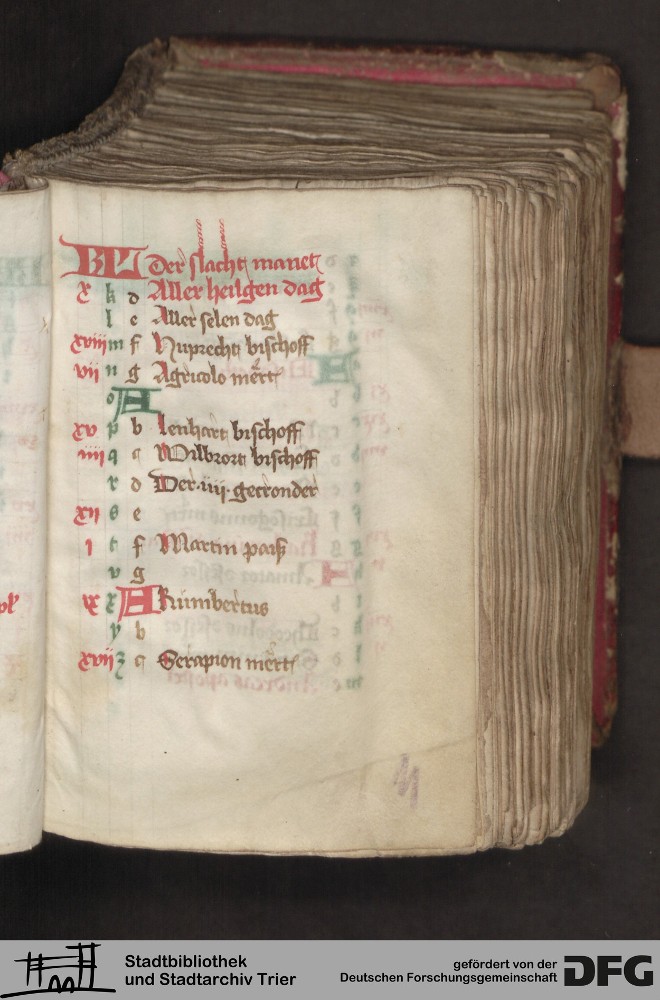 KL Der slacht manet
x k d Aller heilgen dag
l e Aller selen dag
xviii m f Huprecht bischoff
vii n g Agricolo mert
o A
xv p b lenhart bischoff
iiii q c Wilbrort bischoff
r d Der iiii gecronder
xii s e
i t f Martin pais
v g
ix x A Kumbertus
y b
xvii z c Serapion mert
Stadtbibliothek
und Stadtarchiv Trier
gefördert von der
Deutschen Forschungsgemeinschaft
DFG